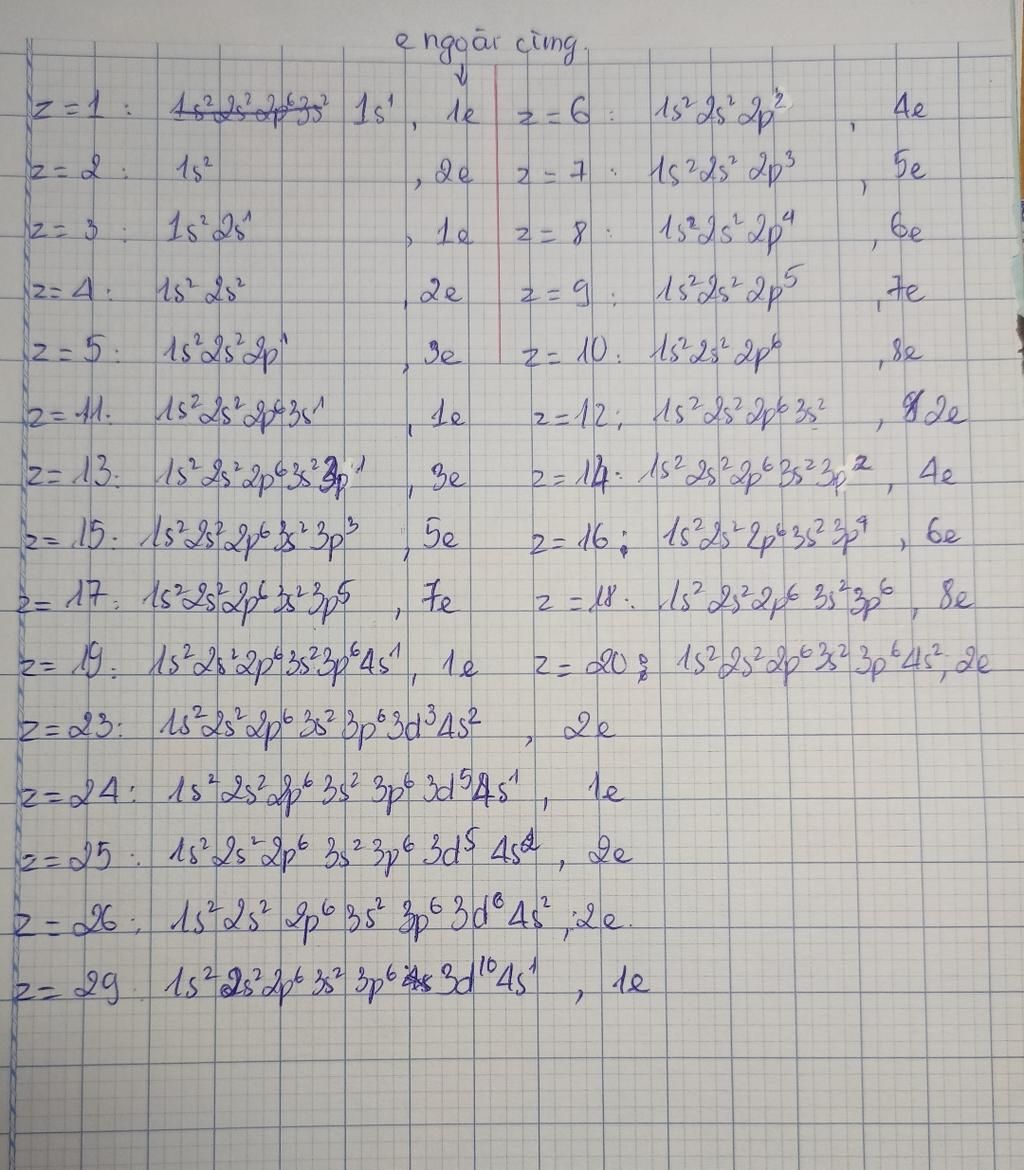 e ngoài cùng.
↓
z = 1 : 1s² 2s² 2p⁶ 3s² 1s¹ , 1e z = 6 : 1s² 2s² 2p² , 4e
z = 2 : 1s² , 2e z = 7 : 1s² 2s² 2p³ , 5e
z = 3 : 1s² 2s¹ , 1e z = 8 : 1s² 2s² 2p⁴ , 6e
z = 4 : 1s² 2s² , 2e z = 9 : 1s² 2s² 2p⁵ , 7e
z = 5 : 1s² 2s² 2p¹ , 3e z = 10 : 1s² 2s² 2p⁶ , 8e
z = 11. 1s² 2s² 2p⁶ 3s¹ , 1e z = 12 : 1s² 2s² 2p⁶ 3s² , 2e
z = 13 : 1s² 2s² 2p⁶ 3s² 3p¹ , 3e z = 14 : 1s² 2s² 2p⁶ 3s² 3p² , 4e
z = 15 : 1s² 2s² 2p⁶ 3s² 3p³ , 5e z = 16 : 1s² 2s² 2p⁶ 3s² 3p⁴ , 6e
z = 17 : 1s² 2s² 2p⁶ 3s² 3p⁵ , 7e z = 18 : 1s² 2s² 2p⁶ 3s² 3p⁶ , 8e
z = 19 : 1s² 2s² 2p⁶ 3s² 3p⁶ 4s¹ , 1e z = 20 : 1s² 2s² 2p⁶ 3s² 3p⁶ 4s² , 2e
z = 23 : 1s² 2s² 2p⁶ 3s² 3p⁶ 3d³ 4s² , 2e
z = 24 : 1s² 2s² 2p⁶ 3s² 3p⁶ 3d⁵ 4s¹ , 1e
z = 25 : 1s² 2s² 2p⁶ 3s² 3p⁶ 3d⁵ 4s² , 2e
z = 26 : 1s² 2s² 2p⁶ 3s² 3p⁶ 3d⁶ 4s² , 2e.
z = 29 : 1s² 2s² 2p⁶ 3s² 3p⁶ 4s 3d¹⁰ 4s¹ , 1e